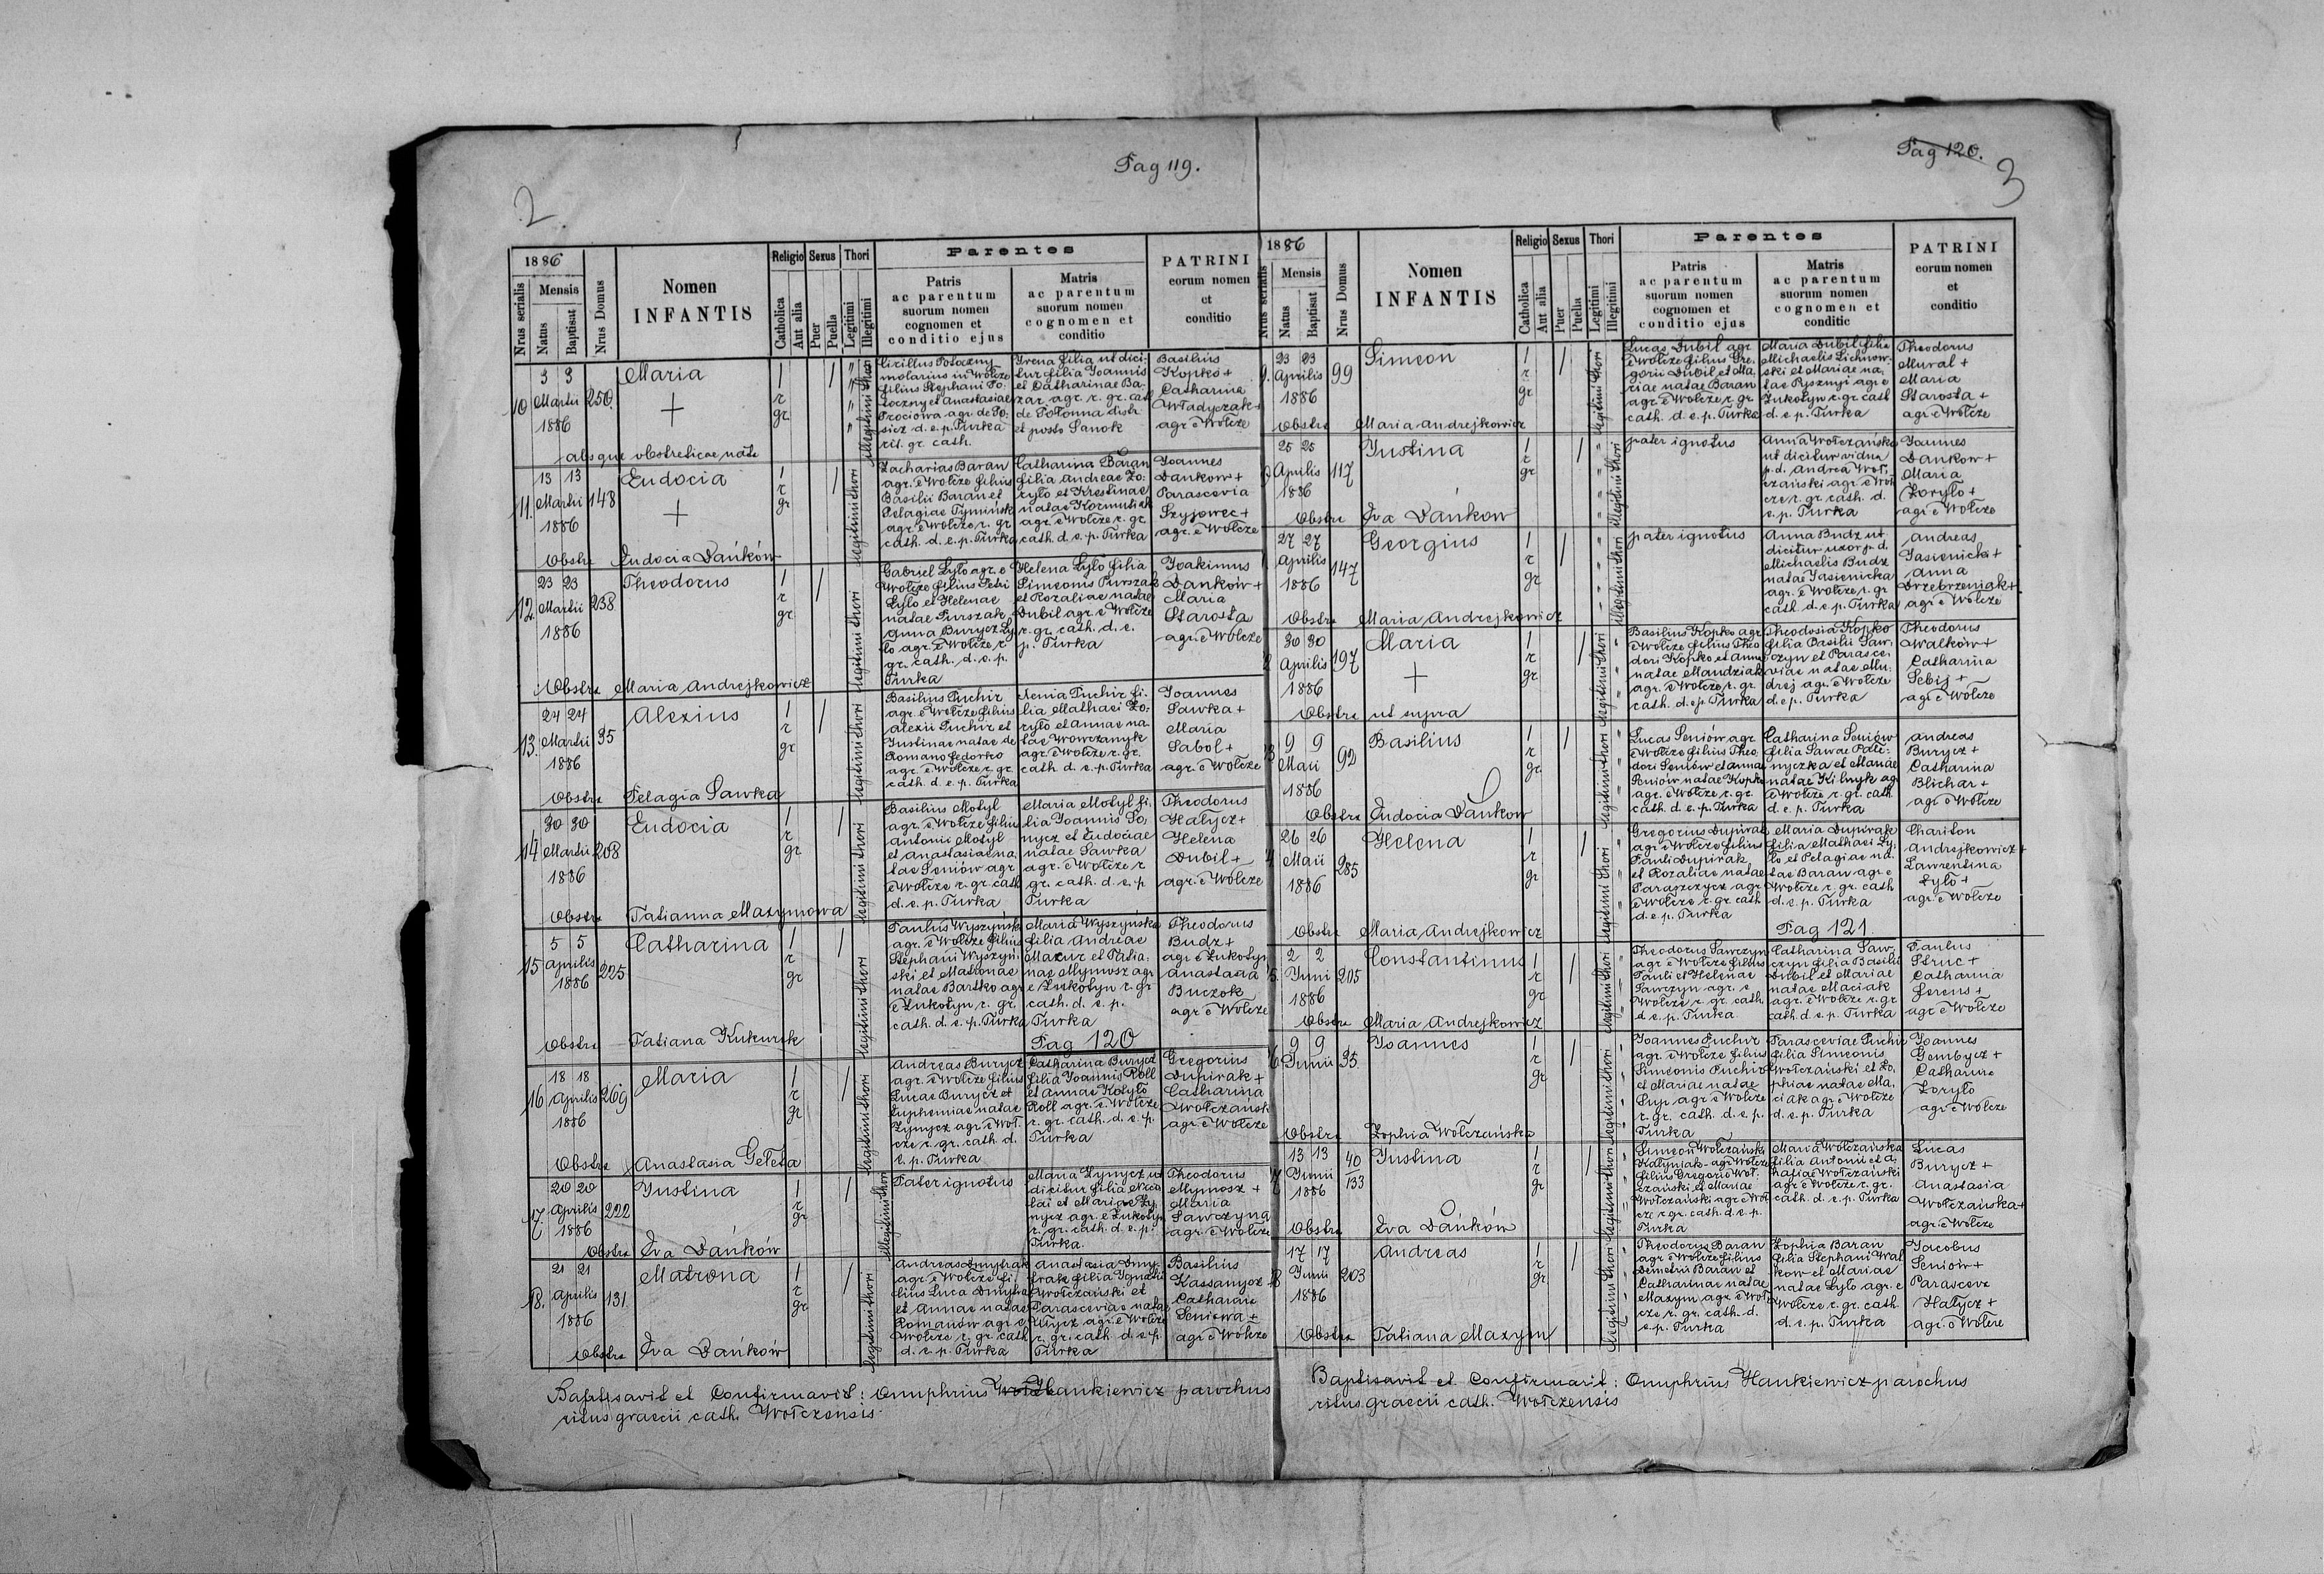 Pag 119.
2
1886
Nrus serialis
Mensis
Natus
Baptisat
Nrus Domus
Nomen
INFANTIS
Religio
Catholica
Aut alia
Sexus
Puer
Puella
Thori
Legitimi
Illegitimi
Parentes
Patris
ac parentum
suorum nomen
cognomen et
conditio ejus
Matris
ac parentum
suorum nomen
cognomen et
conditio
PATRINI
eorum nomen
et
conditio
10
3 3
Martii
1886
250
Maria
+
1
r
gr
1
illegitimi thori
Cirillus Potoczny
molarius in Wołcze
filius Stephani Po-
toczny et Anastasiae
Prociowa agr. de Po-
sicz d. e. p. Turka
rit. gr. cath.
Irena filia ut dici-
tur filia Joannis
et Catharinae Ba-
zar. agr. r. gr. cath
de Połonna distr
et posto Sanok
Basilius
Kopko +
Catharina
Władyczak +
agr e Wołcze
absque obstetricae nate
11.
13 13
Martii
1886
148
Eudocia
+
1
r
gr
1
legitimi thori
Zacharias Baran
agr. e Wołcze filius
Basilii Baran et
Pelagiae Tymińsk
agr. e Wołcze r. gr
cath. d. e. p. Turka
Catharina Baran
filia Andreae Zo-
ryło et Krestinae
natae Kormusiak
agr. e Wołcze r. gr.
cath. d. e. p. Turka
Joannes
Dankow +
Parascevia
Szyjowec +
agr. e Wołcze
Obstre Eudocia Dańków
12.
23 23
Martii
1886
238
Theodorus
1
r
gr.
1
legitimi thori
Gabriel Lyło agr. e
Wołcze filius Petri
Lyło et Helenae
natae Purszak
Anna Burycz Ly-
ło agr. e Wołcze r
gr. cath. d. e. p.
Turka
Helena Lyło filia
Simeonis Purszak
et Rozaliae natae
Dubil agr. e Wołcze
r. gr. cath. d. e.
p. Turka
Joakimus
Dankow +
Maria
Starosta
agr. e Wołcze
Obstre Maria Andrejkowicz
13.
24 24
Martii
1886
35
Alexius
1
r
gr
1
legitimi thori
Basilius Puchir
agr. e Wołcze filius
Alexii Puchir et
Justinae natae de
Romano Fedorko
agr. e Wołcze r. gr
cath. d. e. p. Turka
Xenia Puchir fi-
lia Mathaei Zo-
ryło et Annae na-
tae Wowczanyk
agr. e Wołcze r. gr.
cath d. e. p. Turka
Joannes
Sawka +
Maria
Sabol +
agr. e Wołcze
Obstre Pelagia Sawka
14
30 30
Martii
1886
208
Eudocia
1
r
gr
1
legitimi thori
Basilius Motyl
agr. e Wołcze filius
Antonii Motyl
et Anastasiae na-
tae Seniów agr
e Wołcze r. gr. cath
d. e. p. Turka
Maria Motyl fi-
lia Joannis So-
nycz et Eudociae
natae Sawka
agr. e Wołcze r
gr. cath. d. e. p
Turka
Theodorus
Halycz +
Helena
Dubil +
agr. e Wołcze
Obstre Tatianna Maxymowa
15
5 5
Aprilis
1886
225
Catharina
1
r
gr
1
legitimi thori
Paulus Wyszyński
agr. e Wołcze filius
Stephani Wyszyn-
ski et Matronae
natae Bartko agr
e Żukotyn r. gr.
cath. d. e. p. Turka
Maria Wyszyńska
filia Andreae
Mazur et Tatia-
nae Mymosz agr
e Żukotyn r. gr
cath. d. e. p.
Turka
Theodorus
Budz +
agr e Żukotyn
Anastasia
Buczok
agr e Wołcze
Obstre Tatiana Kukurik
Pag 120
16
18 18
Aprilis
1886
269
Maria
1
r
gr
1
legitimi thori
Andreas Burycz
agr. e Wołcze filius
Lucae Burycz et
Euphemiae natae
Zynycz agr e Woł-
cze r. gr. cath d.
e. p. Turka
Catharina Burycz
filia Joannis Roll
et Annae Kotyło
Roll agr. e Wołcze
r. gr. cath. d. e. p.
Turka
Gregorius
Dupirak +
Catharina
Wołczansk
agr e Wołcze
Obstre Anastasia Gełeta
17
20 20
Aprilis
1886
222
Justina
1
r
gr
1
illegitimi thori
Pater ignotus
Maria Zynycz ut
dicitur filia Nico-
lai et Mariae Zy-
nycz agr. e Żukotyn
r. gr. cath. d. e. p.
Turka.
Theodorus
Mymosz +
Maria
Sawczyna
agr. e Wołcze
Obstre Eva Dańków
18.
21 21
Aprilis
1886
131
Matrona
1
r
gr
1
legitimi thori
Andreas Dmytrak
agr. e Wołcze fi-
lius Luca Dmytra
et Annae natae
Romanów agr e
Wołcze r. gr cath
d. e. p. Turka
Anastasia Dmy-
trak filia Ignatii
Wołczański et
Parasceviae natae
Ułycz agr. e Wołcze
r. gr. cath d e p.
Turka
Basilius
Kassanycz
Catharina
Seniowa +
agr e Wołcze
Obstre Eva Dańków
Baptisavit et Confirmavit: Onuphrius Hankiewicz parochus
ritus graecii cath. Wołczensis
Pag 120.
3
1886
Nrus serialis
Mensis
Natus
Baptisat
Nrus Domus
Nomen
INFANTIS
Religio
Catholica
Aut alia
Sexus
Puer
Puella
Thori
Legitimi
Illegitimi
Parentes
Patris
ac parentum
suorum nomen
cognomen et
conditio ejus
Matris
ac parentum
suorum nomen
cognomen et
conditic
PATRINI
eorum nomen
et
conditio
9.
23 23
Aprilis
1886
99
Simeon
1
r
gr
1
legitimi thori
Lucas Dubil agr
e Wołcze filius Gre-
gorii Dubil et Ma-
riae natae Baran
agr. e Wołcze r. gr
cath. d. e. p. Turka
Maria Dubil filia
Michaelis Lichnow-
ski et Mariae na-
tae Rysznyi agr e
Żukotyn r. gr cath
d. e. p. Turka
Theodorus
Mural +
Maria
Starosta +
agr e Wołcze
Obstre Maria Andrejkowicz
25 25
Aprilis
1886
117
Justina
1
r
gr
1
illegitimi thori
pater ignotus
Anna Wołczańska
ut dicitur vidua
p. d. Andrea Woł-
czański agr. e Woł
cze r. gr. cath. d.
e. p. Turka
Joannes
Dankow +
Maria
Zoryło +
agr e Wołcze
Obstre Eva Dańkow
27 27
Aprilis
1886
147
Georgius
1
r
gr
1
illegitimi thori
pater ignotus
Anna Budz ut
dicitur uxor p. d.
Michaelis Budz
natae Jasienicka
agr. e Wołcze r. gr
cath. d. e. p. Turka
Andreas
Jasienicki +
Anna
Drzebrzeniak +
agr e Wołcze
Obstre Maria Andrejkowicz
30 30
Aprilis
1886
197
Maria
+
1
r
gr
1
legitimi thori
Basilius Kopko agr
e Wołcze filius Theo
dori Kopko et Anna
natae Mandziak
agr. e Wołcze r. gr
cath. d. e. p Turka
Theodosia Kopko
filia Basilii Saw-
czyn et Parasce-
viae natae Mu-
drej agr. e Wołcze
d. e. p. Turka
Theodorus
Walków +
Catharina
Sebij +
agr e Wołcze
Obstre ut supra
9 9
Maii
1886
92
Basilius
1
r
gr
1
legitimi thori
Lucas Seniów agr
e Wołcze filius Theo-
dori Seniów et Anna
Seniów natae Kopko
agr. e Wołcze r. gr.
cath. d. e. p. Turka
Catharina Seniów
filia Sawae Pale-
nyczka et Mariae
natae Kilnyk ag
e Wołcze r. gr. cath.
d. e. p. Turka
Andreas
Burycz +
Catharina
Blichar +
agr e Wołcze
Obstre Eudocia Dankow
26 26
Maii
1886
285
Helena
1
r
gr
1
legitimi thori
Gregorius Dupirak
agr e Wołcze filius
Pauli Dupirak
et Rozaliae natae
Paraszczycz agr
e Wołcze r. gr cath
d. e. p. Turka
Maria Dupirak
filia Mathaei Ly-
ło et Pelagiae na-
tae Baran agr e
Wołcze r. gr. cath
d. e. p. Turka
Chariton
Andrejkowicz +
Lawrentina
Lyło +
agr. e Wołcze
Obstre Maria Andrejkowicz
Pag 121.
2 2
Juni
1886
205
Constantinus
1
r
gr
1
legitimi thori
Theodorus Sawczyn
agr e Wołcze filius
Pauli et Helenae
Sawczyn agr. e
Wołcze r. gr. cath.
d e. p. Turka
Catharina Saw-
czyn filia Basilii
Dubil et Mariae
natae Maciak
agr. e Wołcze r. gr
cath d. e. p. Turka
Paulus
Struc +
Catharina
Ferens +
agr e Wołcze
Obstre Maria Andrejkowicz
9 9
Junii
35
Joannes
1
r
gr
1
legitimi thori
Joannes Puchir
agr. e Wołcze filius
Simeonis Puchir
et Mariae natae
Sup agr e Wołcze
r. gr. cath. d. e. p.
Turka
Parasceviae Puchir
filia Simeonis
Wołczański et Zo-
phiae natae Ma-
ciak agr e Wołcze
d. e. p. Turka
Joannes
Gembycz +
Catharina
Zoryło
agr e Wołcze
Obstre Zophia Wołczańska
13 13
Junii
1886
40
133
Justina
1
r
gr
1
legitimi thori
Simeon Wołczański
Kalyniak agr Wołcze
filius Gregorii Woł-
czański et Mariae
Wołczański agr e Woł
cze r gr. cath. d. e. p.
Turka
Maria Wołczańska
filia Antonii et A-
nasiae Wołczański
agr e Wołcze r. gr.
cath. d. e. p. Turka
Lucas
Burycz +
Anastasia
Wołczańska +
agr. e Wołcze
Obstre Eva Dańków
17 17
Junii
1886
203
Andreas
1
r
gr
1
legitimi thori
Theodorus Baran
agr e Wołcze filius
Demetrii Baran et
Catharinae natae
Maxym agr. e Woł-
cze r. gr. cath. d.
e. p. Turka
Zophia Baran
filia Stephani Wal
kow et Mariae
natae Lyło agr. e
Wołcze r. gr. cath.
d. e. p. Turka
Jacobus
Seniow +
Parasceve
Hałycz +
agr. e Wołcze
Obstre Tatiana Maxym
Baptisavit et Confirmavit: Onuphrius Hankiewicz parochus
ritus graecii cath. Wołczensis